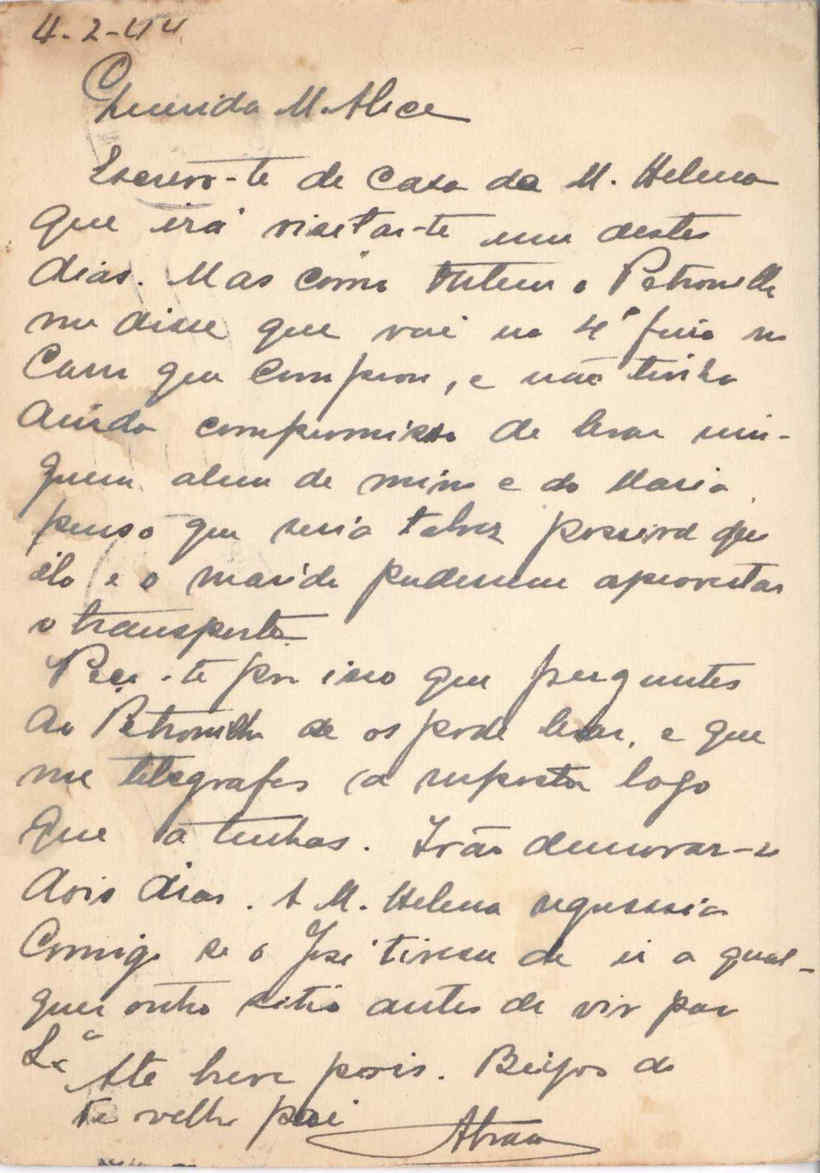 4-2-44
Querida M. Alice
Escrevo-te de casa da M. Helena
que irá visitar-te um destes
dias. Mas como ontem o Petronilho
me disse que vai na 4ª feira no
carro que comprou, e não tinha
ainda compromisso de levar nin-
guem alem de mim e da Maria,
penso que seria talvez possivel que
ela e o marido pudessem aproveitar
o transporte
Peço-te por isso que perguntes
ao Petronilho se os pode levar, e que
me telegrafes a resposta logo
que a tenhas. Irão demorar-se
dois dias. A M. Helena regressaria
comigo se o José tivesse de ir a qual-
quer outro sitio antes de vir par
Lx.ª
Até breve pois. Beijos do
teu velho pai